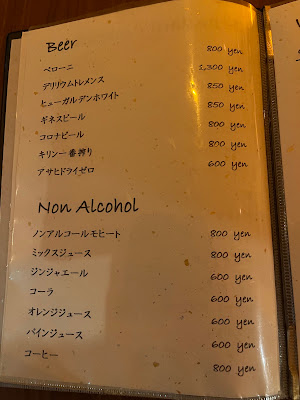 Beer
ペローニ 800 yen
デリリウムトレメンス 1,300 yen
ヒューガルデンホワイト 850 yen
ギネスビール 850 yen
コロナビール 800 yen
キリン一番搾り 800 yen
アサヒドライゼロ 600 yen
Non Alcohol
ノンアルコールモヒート 800 yen
ミックスジュース 800 yen
ジンジャエール 600 yen
コーラ 600 yen
オレンジジュース 600 yen
パインジュース 600 yen
コーヒー 800 yen